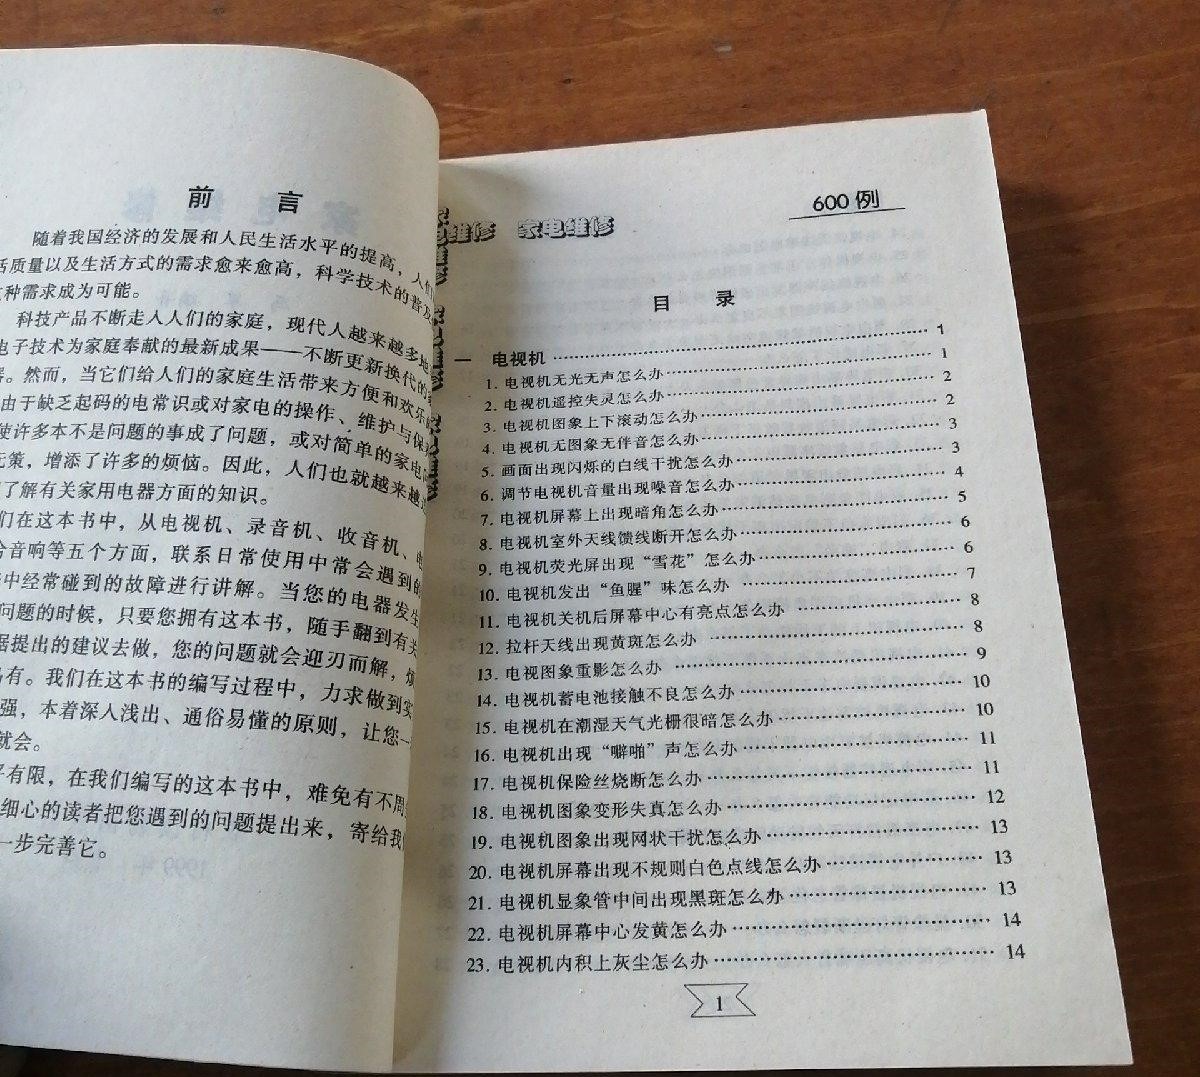 前 言
随着我国经济的发展和人民生活水平的提高，人们
活质量以及生活方式的需求愈来愈高，科学技术的普及
种需求成为可能。
科技产品不断走人人们的家庭，现代人越来越多地
电子技术为家庭奉献的最新成果——不断更新换代的
。然而，当它们给人们的家庭生活带来方便和欢乐
由于缺乏起码的电常识或对家电的操作、维护与保
使许多本不是问题的事成了问题，或对简单的家电
无策，增添了许多的烦恼。因此，人们也就越来越
了解有关家用电器方面的知识。
们在这本书中，从电视机、录音机、收音机、
合音响等五个方面，联系日常使用中常会遇到的
中经常碰到的故障进行讲解。当您的电器发生
问题的时候，只要您拥有这本书，随手翻到有关
据提出的建议去做，您的问题就会迎刃而解，烦
有。我们在这本书的编写过程中，力求做到实
强，本着深人浅出、通俗易懂的原则，让您一
就会。
平有限，在我们编写的这本书中，难免有不周
细心的读者把您遇到的问题提出来，寄给我
一步完善它。
600 例
电维修 家电维修
目 录
一 电视机 1
1. 电视机无光无声怎么办 1
2. 电视机遥控失灵怎么办 2
3. 电视机图象上下滚动怎么办 2
4. 电视机无图象无伴音怎么办 3
5. 画面出现闪烁的白线干扰怎么办 3
6. 调节电视机音量出现噪音怎么办 4
7. 电视机屏幕上出现暗角怎么办 5
8. 电视机室外天线馈线断开怎么办 6
9. 电视机荧光屏出现“雪花”怎么办 6
10. 电视机发出“鱼腥”味怎么办 7
11. 电视机关机后屏幕中心有亮点怎么办 8
12. 拉杆天线出现黄斑怎么办 8
13. 电视图象重影怎么办 9
14. 电视机蓄电池接触不良怎么办 10
15. 电视机在潮湿天气光栅很暗怎么办 10
16. 电视机出现“噼啪”声怎么办 11
17. 电视机保险丝烧断怎么办 11
18. 电视机图象变形失真怎么办 12
19. 电视机图象出现网状干扰怎么办 13
20. 电视机屏幕出现不规则白色点线怎么办 13
21. 电视机显象管中间出现黑斑怎么办 13
22. 电视机屏幕中心发黄怎么办 14
23. 电视机内积上灰尘怎么办 14
1